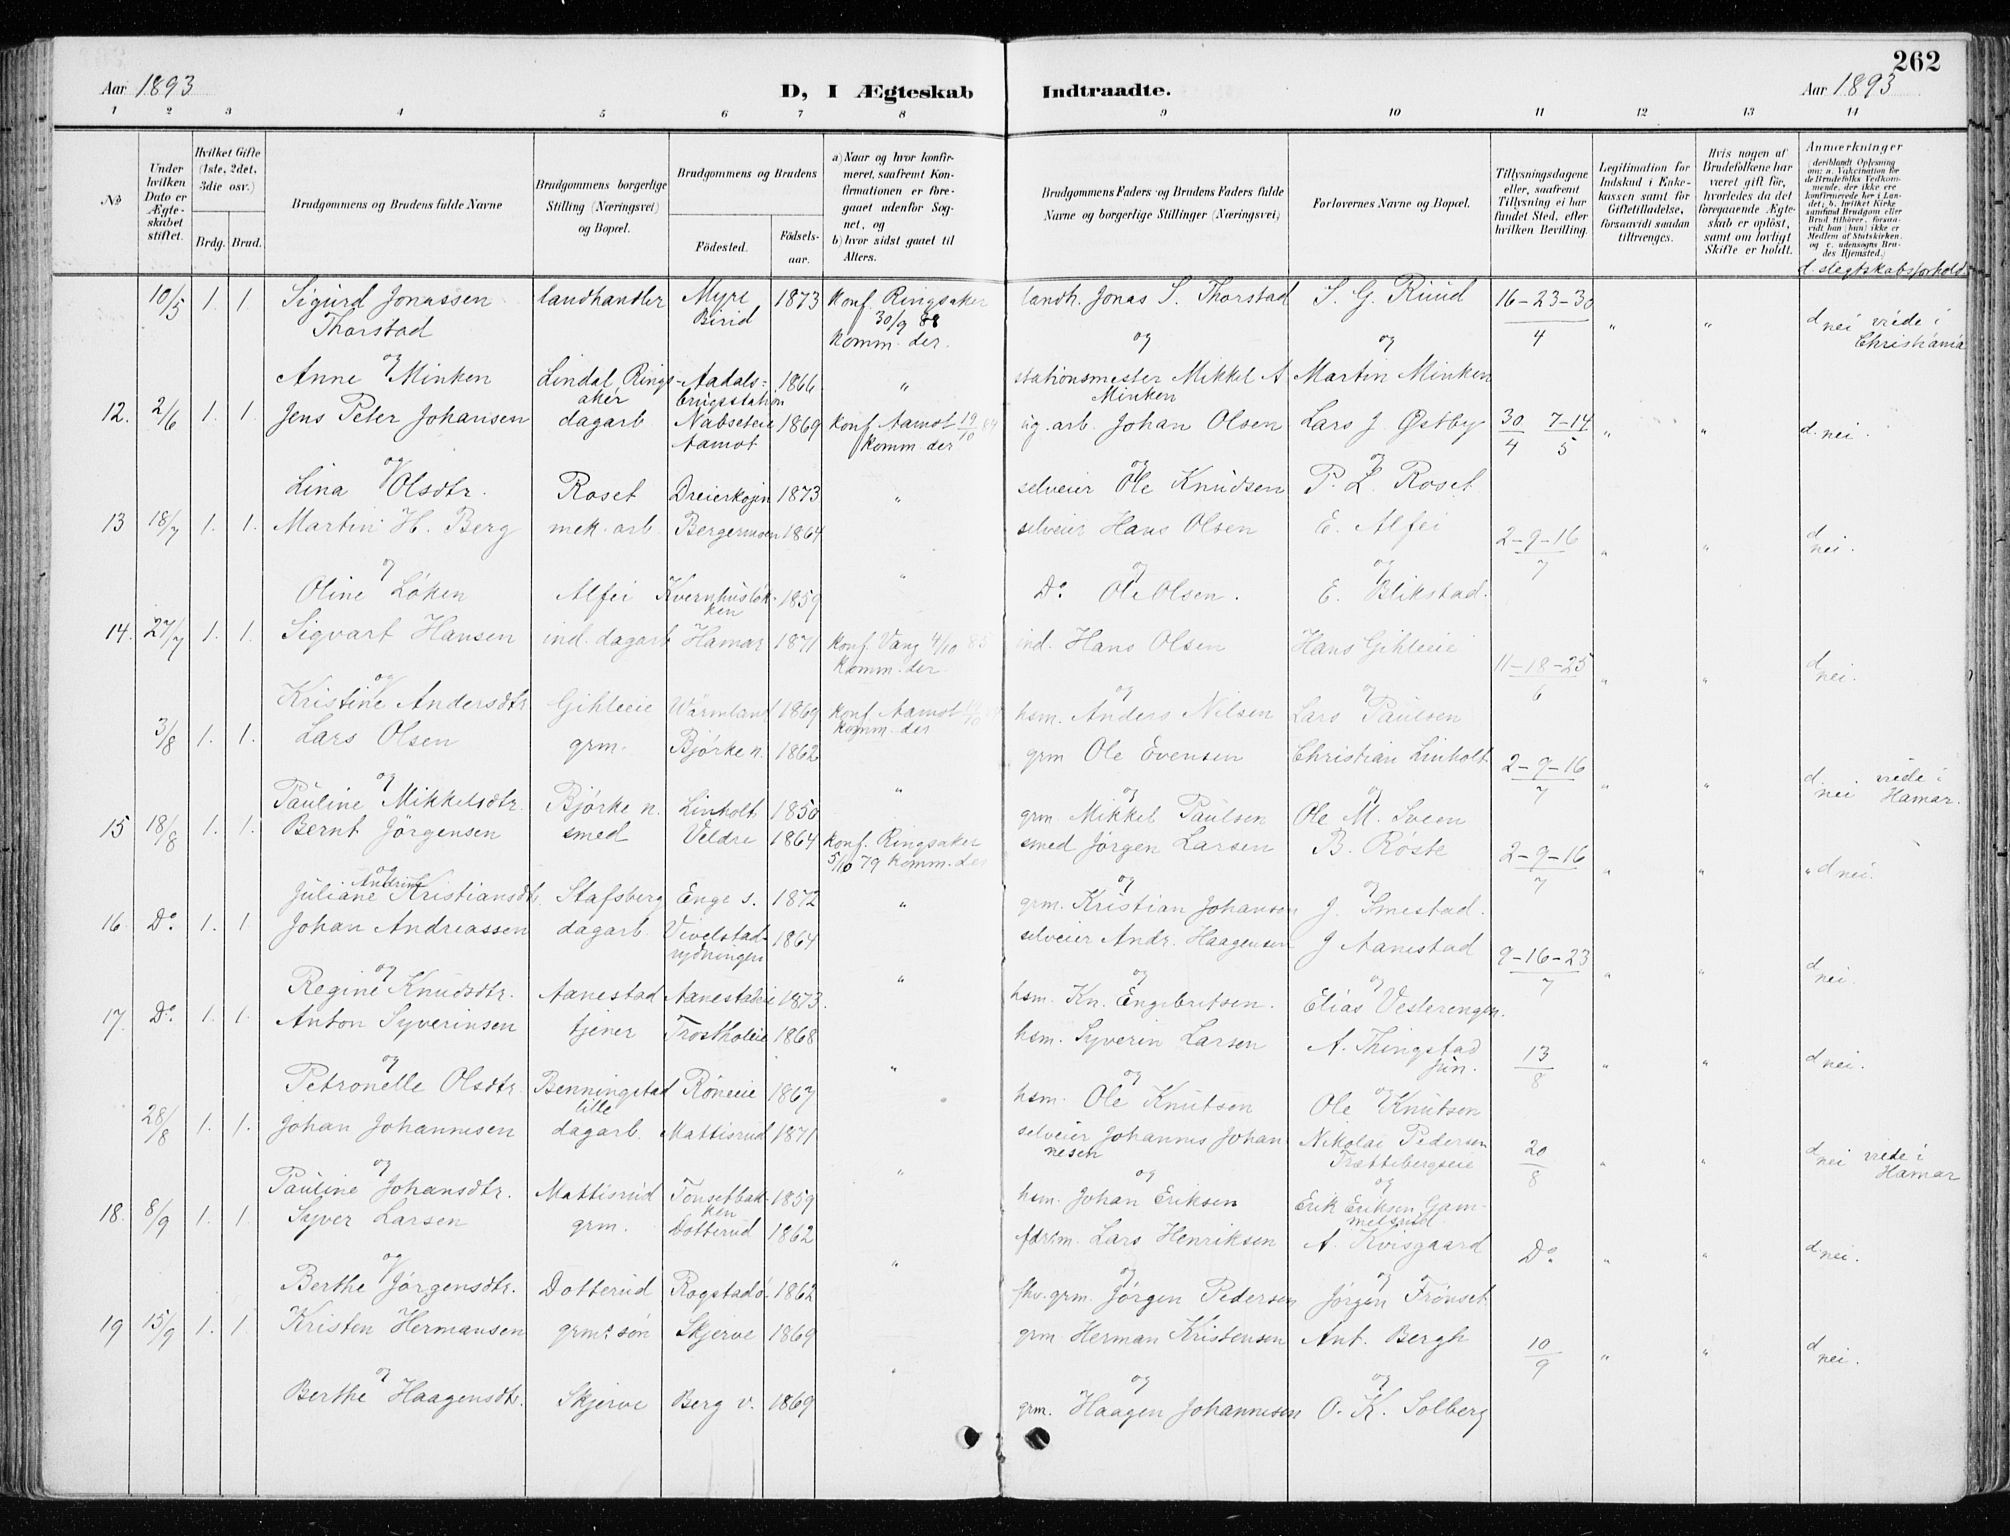 262
Aar 1893
D, I Ægteskab Indtraadte.
Aar 1893
1 2 3 4 5 6 7 8 9 10 11 12 13 14
No
Under hvilken Dato er Ægteskabet stiftet.
Hvilket Gifte (1ste, 2det, 3die osv.)
Brdg. Brud.
Brudgommens og Brudens fulde Navne
Brudgommens borgerlige Stilling (Næringsvei) og Bopæl.
Brudgommens og Brudens
Födested.
Födsels-aar.
a) Naar og hvor konfirmeret, saafremt Konfirmationen er foregaaet udenfor Sognet, og
b) hvor sidst gaaet til Alters.
Brudgommens Faders og Brudens Faders fulde Navne og borgerlige Stillinger (Næringsvei)
Forlovernes Navne og Bopæl.
Tillysningsdagene eller, saafremt Tillysning ei har fundet Sted, efter hvilken Bevilling.
Legitimation for Indskud i Enkekassen samt for Giftetilladelse, forsaavidt saadan tiltrænges.
Hvis nogen af Brudefolkene har været gift før, hvorledes da det foregaaende Ægteskab er oplöst, samt om lovligt Skifte er holdt.
Anmærkninger (deriblandt Oplysning om: a. Vaccination for de Brudefolks Vedkommende, der ikke ere konfirmerede her i Landet; b. hvilket Kirkesamfund Brudgom eller Brud tilhörer, forsaavidt han (hun) ikke er Medlem af Statskirken, og c. udensogns Brudes Hjemsted.)
d. slegtskabsforhold.
10/5 1. 1. Sigurd Jonassen Thorstad landhandler Myre Birid 1873 Konf. Ringsaker 30/9 88 Komm. der. landh. Jonas S. Thorstad S. G. Ruud 16-23-30/4 " " d nei viede i Christiania
og og og
Anne Minken Lindal, Ringsaker Aadalsbrugsstation 1866 " stationsmester Mikkel A Minken Martin Minken
12. 2/6 1. 1. Jens Peter Johansen dagarb Nabseteie Aamot 1869 Konf Aamot 19/10 84 Komm. der ug. arb. Johan Olsen Lars J. Østby 30/4 7-14/5 " " d. nei.
og og og
Lina Olsdtr. Roset Dreierkojen 1873 " selveier Ole Knudsen P. L. Roset
13 18/7 1. 1. Martin H. Berg mek. arb. Bergermoen 1864 selveier Hans Olsen E. Alfei 2-9-16/7 " " d nei.
og " og og
Oline Løken Alfei Kvernhusløkken 1859 Do Ole Olsen. E. Blikstad.
14. 27/7 1. 1. Sigvart Hansen ind. dagarb Hamar 1871 Konf. Vang 4/10 85 Komm. der ind. Hans Olsen Hans Gihleeie 11-18-25/6 " " d nei.
og og og
Kristine Andersdtr Gihleeie Wärmland 1869 Konf Aamot 19/10 Komm. der hsm. Anders Nilsen Lars Paulsen
3/8 1. 1. Lars Olsen grm. Bjørke n. 1862 grm Ole Evensen Christian Linholt 2-9-16/7 " " d. nei. viede i Hamar.
og " og og
Pauline Mikkelsdtr. Bjørke n. Linholt 1850 grm. Mikkel Paulsen Ole M. Sveen
15 18/8 1. 1. Bernt Jörgensen smed Veldre 1864 Konf. Ringsaker 5/10 79 Komm. der smed Jørgen Larsen B. Røste 2-9-16/7 " " d nei.
og og og
Juliane Andrine Kristiansdtr. Stafsberg Enge s. 1872 " grm. Kristian Johansen J. Smestad.
16. Do. 1. 1 Johan Andreassen dagarb. Vivelstadrydningen 1864 selveier Andr. Haagensen J Aanestad 9-16-23/7 " " d nei.
og " og og
Regine Knudsdtr. Aanestad Aanestadeie 1873. hsm. Kn. Engebretsen. Elias Vesterengen.
17. Do. 1. 1. Anton Syverinsen tjener Trosholeie 1868 hsm. Syverin Larsen A. Thingstad Jun. 13/8 " " d nei.
og " og og
Petronelle Olsdtr. Benningstad lille Røneeie 1867 hsm. Ole Knutsen Ole Knutsen
28/8 1. 1. Johan Johannesen dagarb. Mattisrud 1871 selveier Johannes Johannesen Nikolai Pedersen Trættebergseie 20/8 " " d nei viede i Hamar
og " og og
Pauline Johansdtr. Mattisrud Tonsetbakken 1859 hsm. Johan Eriksen Erik Eriksen Gammelsrud
18. 8/9 1. 1. Syver Larsen grm. Dotterud 1862 fdrtm. Lars Henriksen A. Kvisgaard Do " " d nei.
og " og og
Berthe Jørgensdtr. Dotterud Rogstad ö. 1862 fhv. grm. Jørgen Pedersen Jørgen Frönset
19 15/9 1. 1 Kristen Hermansen grms. søn Skjerve 1869 grm Herman Kristensen Ant. Bergh 10/9 " " d nei.
og " og og
Berthe Haagensdtr. Skjerve Berg v. 1869 grm. Haagen Johannesen O. K. Solberg